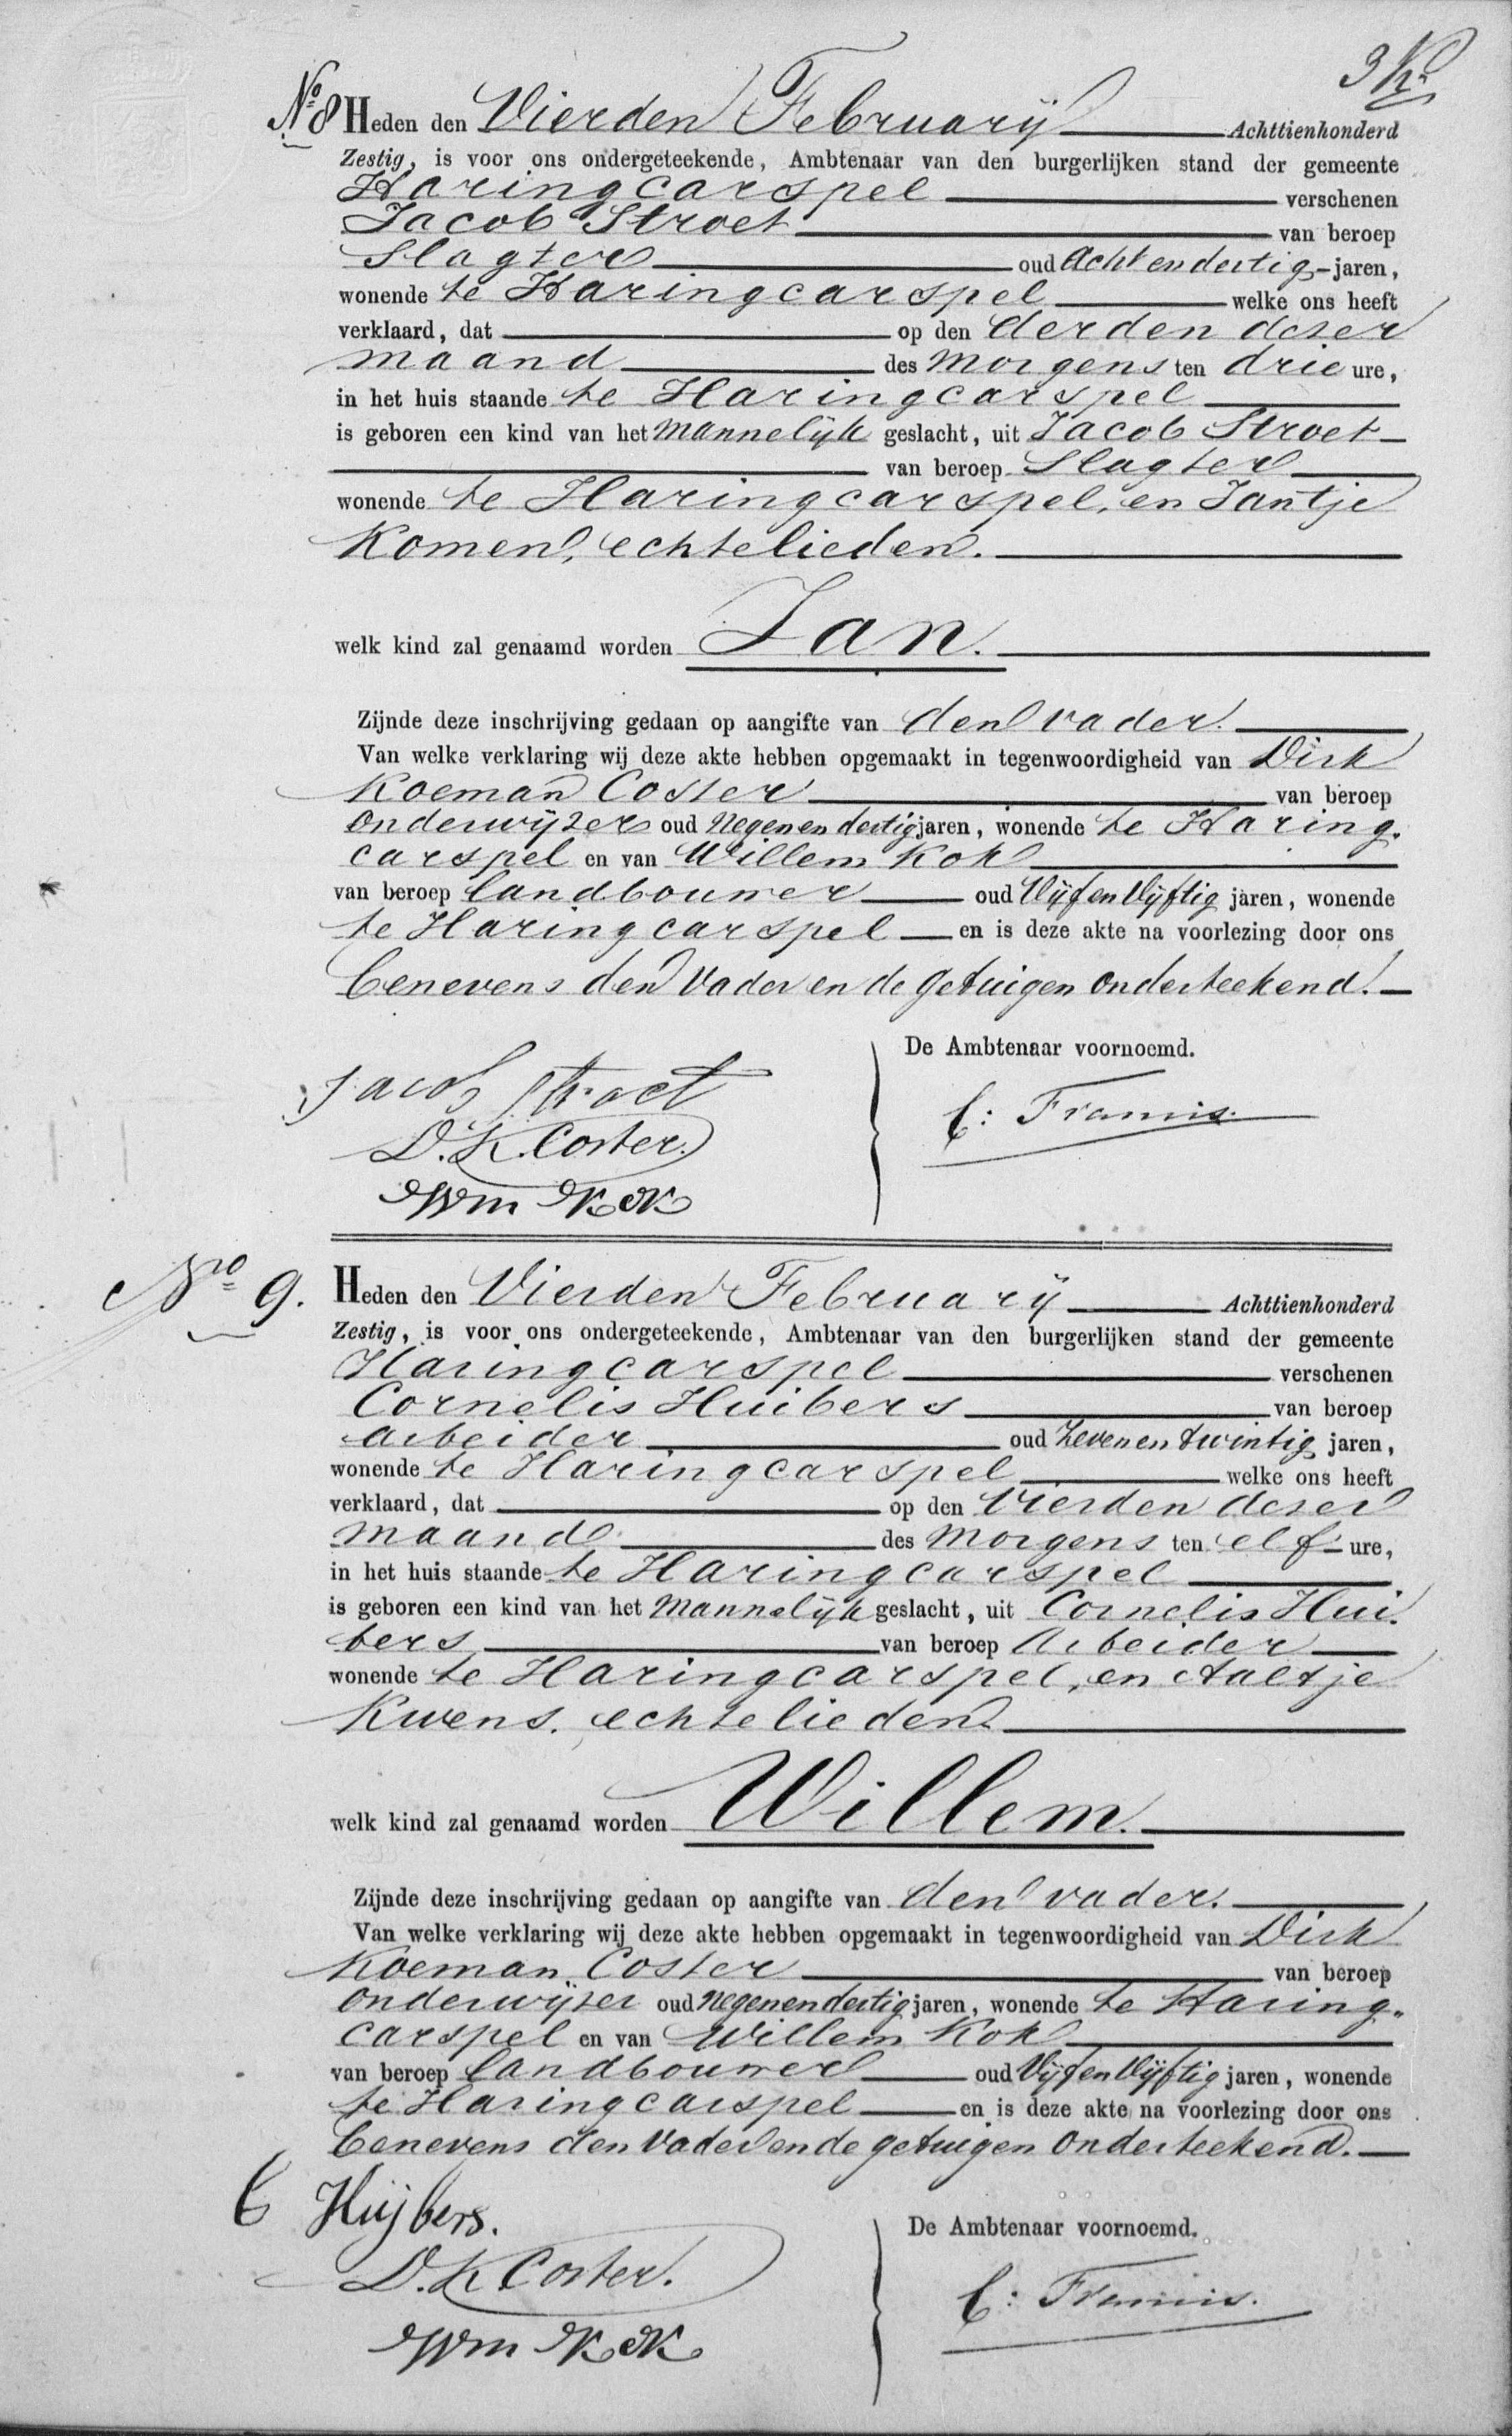 No 8 Heden den Vierden February Achttienhonderd
Zestig, is voor ons ondergeteekende, Ambtenaar van den burgerlijken stand der gemeente
Haringcarspel verschenen
Jacob Stroet van beroep
Slagter oud Acht en dertig jaren,
wonende te Haringcarspel welke ons heeft
verklaard, dat op den derden dezer
maand des morgens ten drie ure,
in het huis staande te Haringcarspel
is geboren een kind van het mannelijk geslacht, uit Jacob Stroet
van beroep Slagter
wonende te Haringcarspel, en Jantje
Komen, echtelieden.
welk kind zal genaamd worden Jan.
Zijnde deze inschrijving gedaan op aangifte van den vader.
Van welke verklaring wij deze akte hebben opgemaakt in tegenwoordigheid van Dirk
Koeman Coster van beroep
onderwijzer oud Negen en dertig jaren, wonende te Haring-
carspel en van Willem Kok
van beroep landbouwer oud Vijf en Vijftig jaren, wonende
te Haringcarspel en is deze akte na voorlezing door ons
benevens den Vader en de getuigen onderteekend.
De Ambtenaar voornoemd.
Jacob Stroet
D. K. Coster.
Wm Kok
No 9. Heden den Vierden February Achttienhonderd
Zestig, is voor ons ondergeteekende, Ambtenaar van den burgerlijken stand der gemeente
Haringcarspel verschenen
Cornelis Huibers van beroep
arbeider oud Zeven en twintig jaren,
wonende te Haringcarspel welke ons heeft
verklaard, dat op den Vierden dezer
maand des morgens ten elf ure,
in het huis staande te Haringcarspel
is geboren een kind van het mannelijk geslacht, uit Cornelis Hui-
bers van beroep Arbeider
wonende te Haringcarspel, en Aaltje
Kwens, echtelieden.
welk kind zal genaamd worden Willem.
Zijnde deze inschrijving gedaan op aangifte van den vader.
Van welke verklaring wij deze akte hebben opgemaakt in tegenwoordigheid van Dirk
Koeman Coster van beroep
onderwijzer oud Negen en dertig jaren, wonende te Haring-
carspel en van Willem Kok
van beroep landbouwer oud Vijf en Vijftig jaren, wonende
te Haringcarspel en is deze akte na voorlezing door ons
benevens den Vader en de getuigen onderteekend.
C Huijbers.
De Ambtenaar voornoemd.
D. K Coster.
Wm Kok